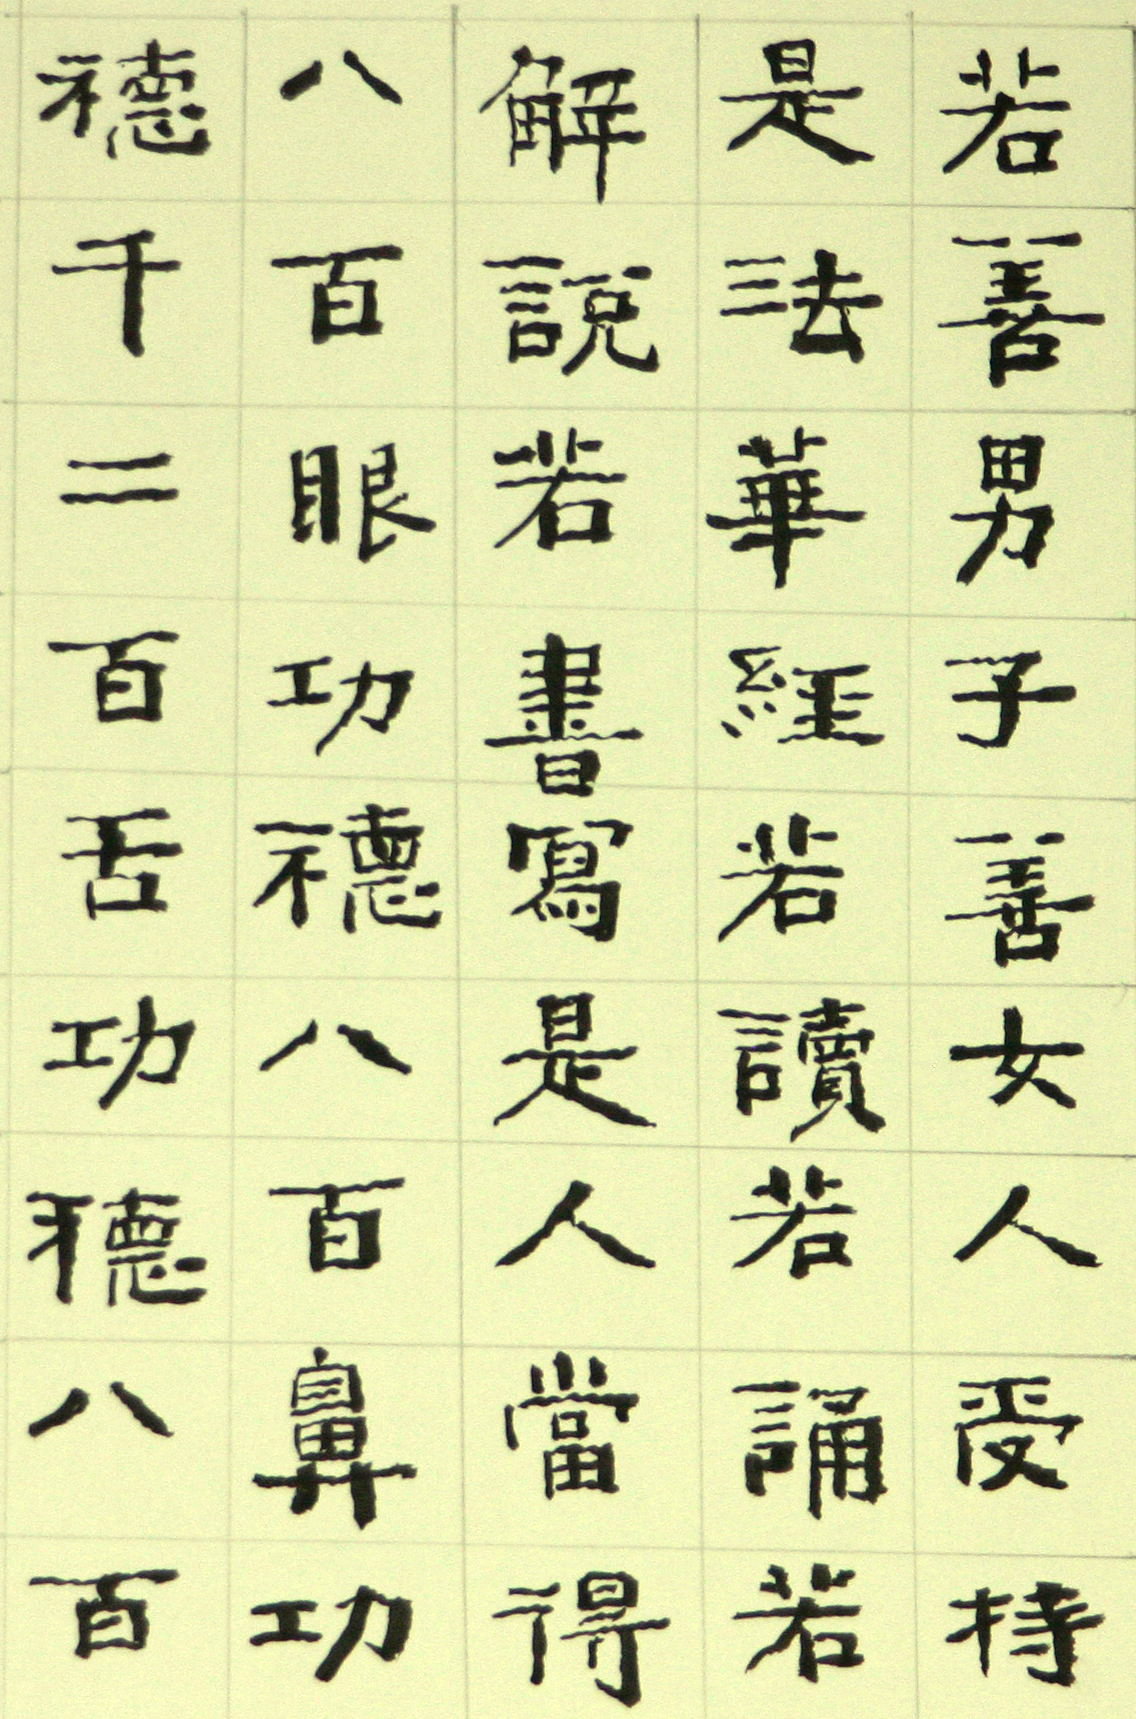 若善男子善女人受持
是法華經若讀若誦若
解說若書寫是人當得
八百眼功德八百鼻功
德千二百舌功德八百